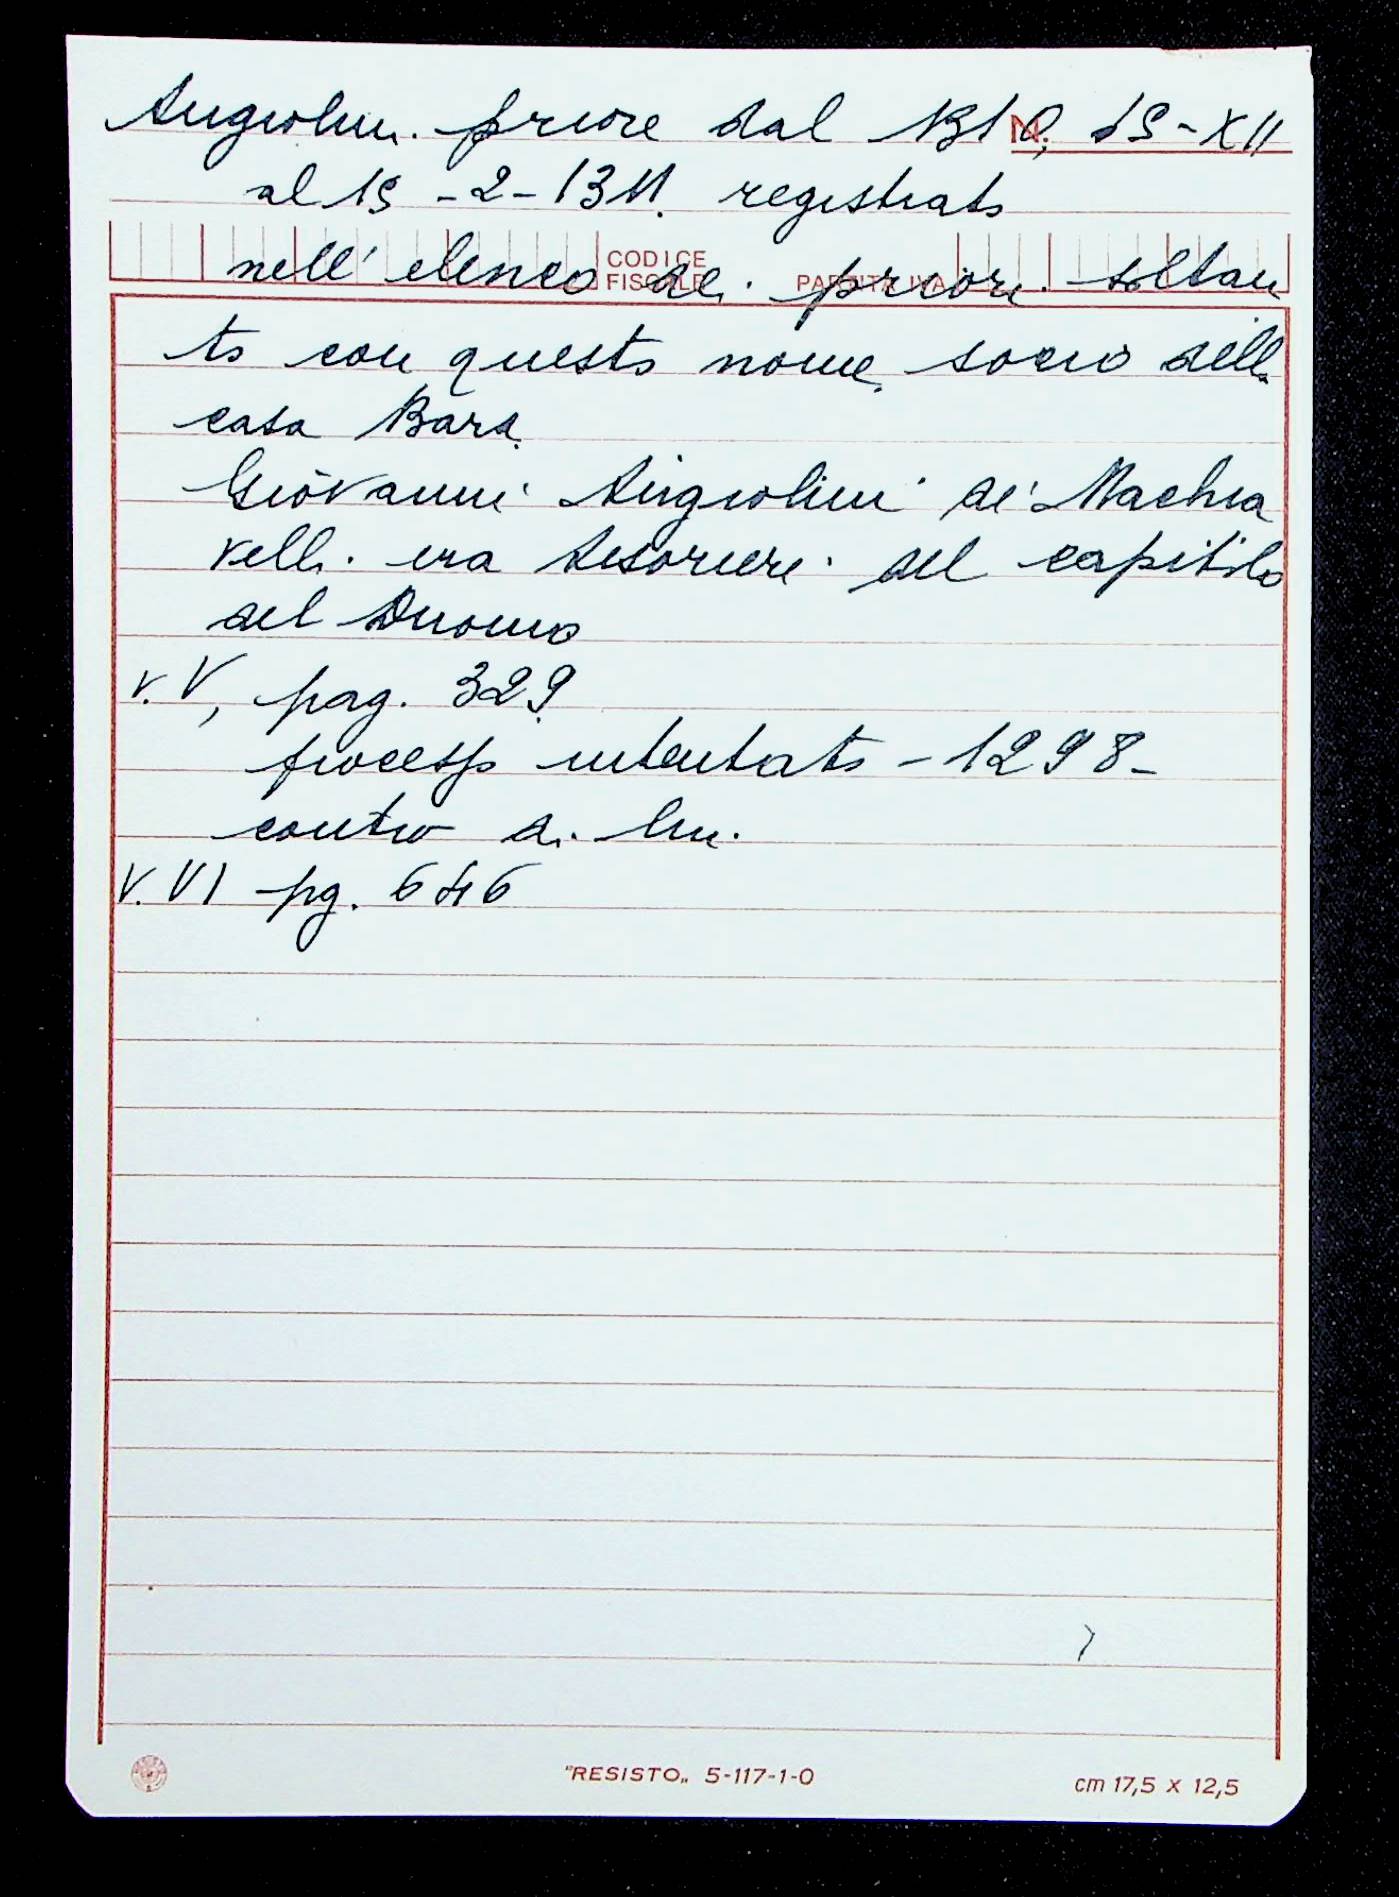 Angiolini priore dal 1310, 15-XII
N.
al 15 - 2 - 1311. registrato
CODICE FISCALE PARTITA IVA
nell' elenco dei priori soltan
to con questo nome, socio della
casa Bardi
Giovanni Angiolini de' Machia
velli. era tesoriere del capitolo
del Duomo
v. V, pag. 329
processo intentato - 1298 -
contro di lui.
V. VI pg. 646
"RESISTO„ 5-117-1-0
cm 17,5 x 12,5